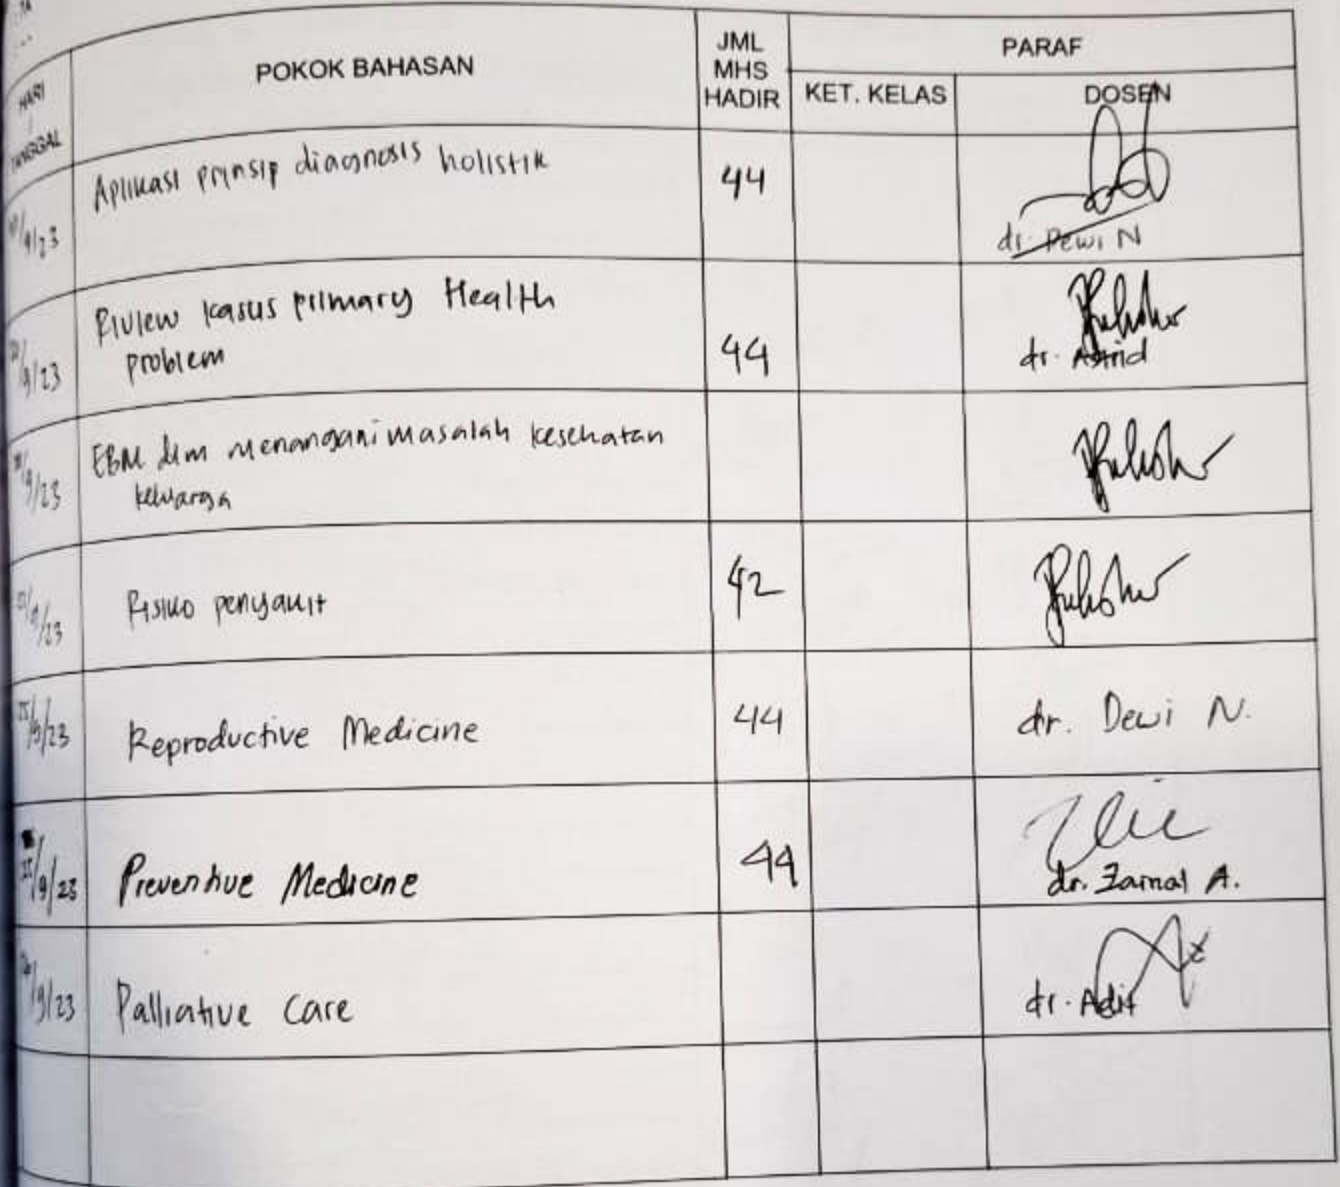 HARI
TANGGAL
POKOK BAHASAN
JML
MHS
HADIR
PARAF
KET. KELAS
DOSEN
/9/23
Aplikasi prinsip diagnosis holistik
44
dr. Dewi N
/9/23
Riview kasus primary Health
problem
44
dr. Astrid
/9/23
EBM dlm menangani masalah kesehatan
keluarga
/9/23
Risiko penyakit
42
25/9/23
Reproductive Medicine
44
dr. Dewi N.
25/9/23
Preventive Medicine
44
dr. Zainal A.
/9/23
Palliative Care
dr. Adit